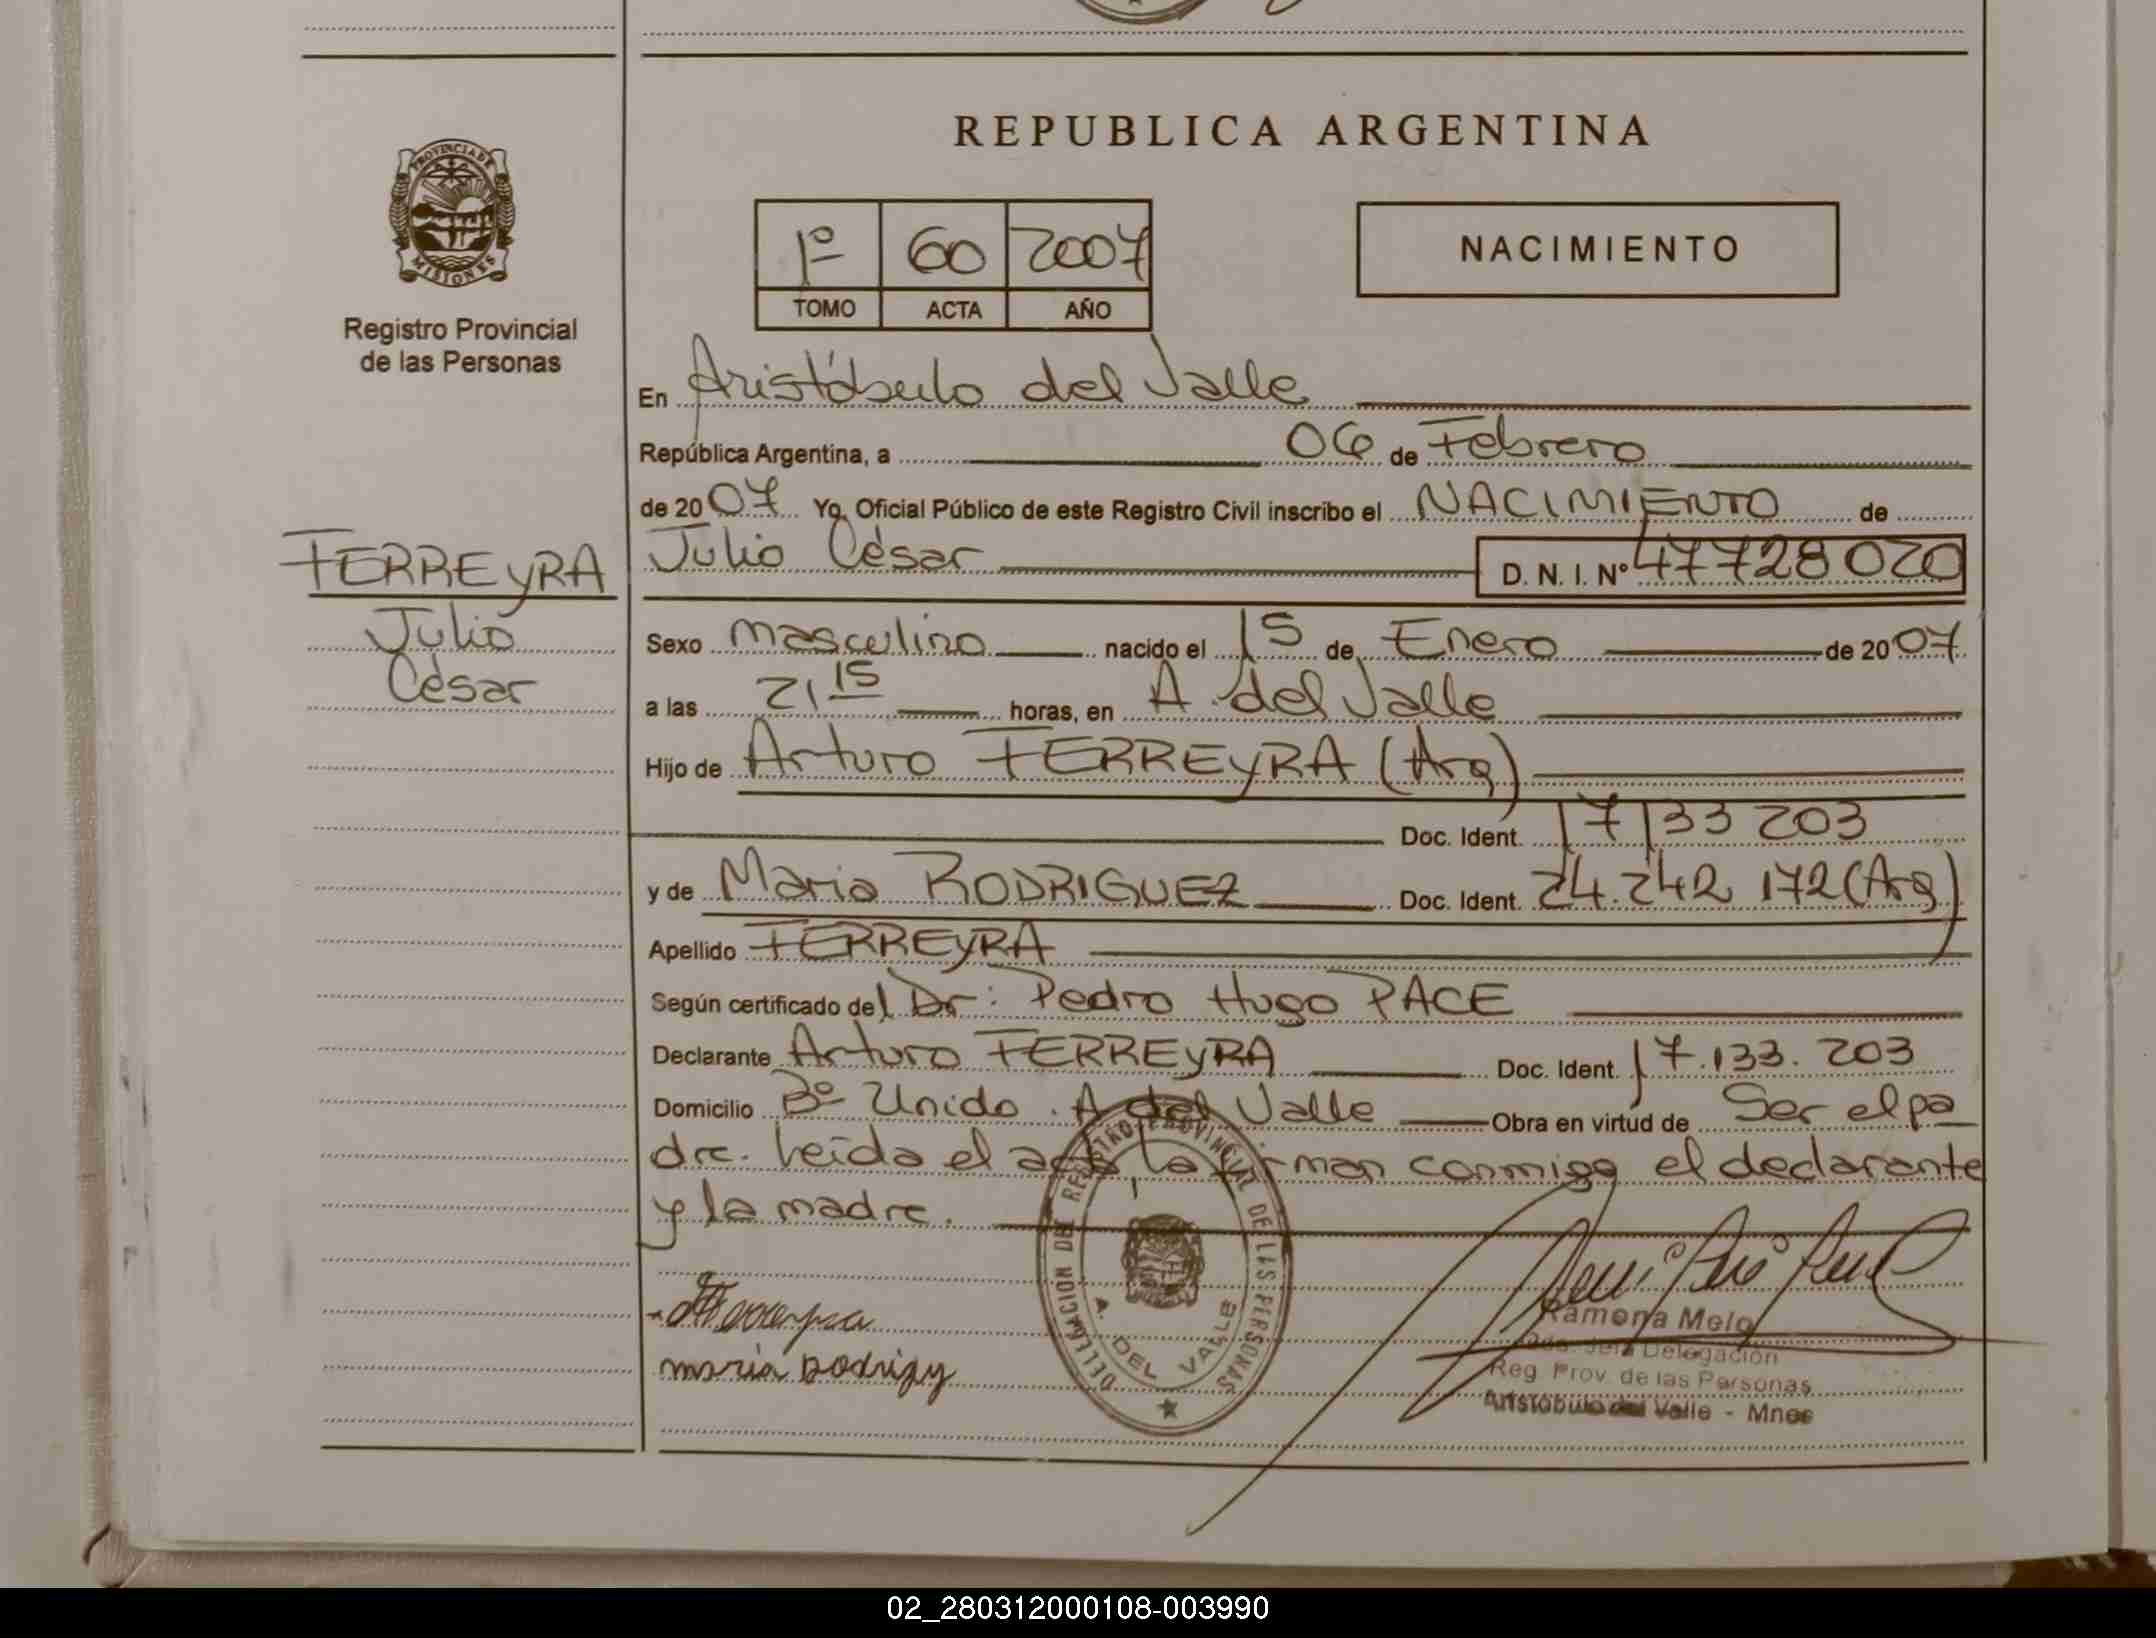 REPUBLICA ARGENTINA
PROVINCIA DE
MISIONES
Registro Provincial
de las Personas
1º 60 2007
TOMO ACTA AÑO
NACIMIENTO
En Aristóbulo del Valle
República Argentina, a 06 de Febrero
de 2007 Yo, Oficial Público de este Registro Civil inscribo el NACIMIENTO de
FERREYRA
Julio
César
Julio César D. N. I. Nº 47728020
Sexo masculino nacido el 15 de Enero de 2007
a las 21 15 horas, en A. del Valle
Hijo de Arturo FERREYRA (Arg)
Doc. Ident. 17133203
y de Maria RODRIGUEZ Doc. Ident. 24.242 172 (Arg)
Apellido FERREYRA
Según certificado del Dr: Pedro Hugo PACE
Declarante Arturo FERREYRA Doc. Ident. 17.133.203
Domicilio Bº Unido. A del Valle Obra en virtud de Ser el pa
dre. Leída el acta la firman conmigo el declarante
y la madre.
DELEGACION DEL REGISTRO PROVINCIAL DE LAS PERSONAS
A. DEL VALLE
Ramona Melo
Jefa Delegación
Reg. Prov. de las Personas
Aristóbulo del Valle - Mnes
02_280312000108-003990